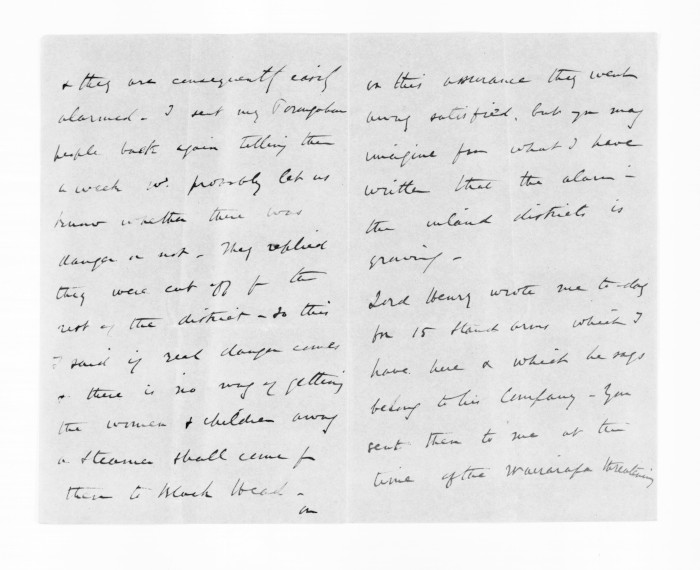 & they are consequently easily
alarmed - I sent my Porangahau
people back again telling them
a week wd. probably let us
know whether there was
danger or not - They replied
they were cut off fr the
rest of the district - to this
I said if real danger comes
& there is no way of getting
the women & children away
a steamer shall come for
them to Black Head -
on
on this assurance they went
away satisfied, but you may
imagine from what I have
written that the alarm -
the inland districts is
growing -
Lord Henry wrote me to-day
for 15 stand arms which I
have here & which he says
belong to his Company - You
sent them to me at the
time of the Wairarapa threatening